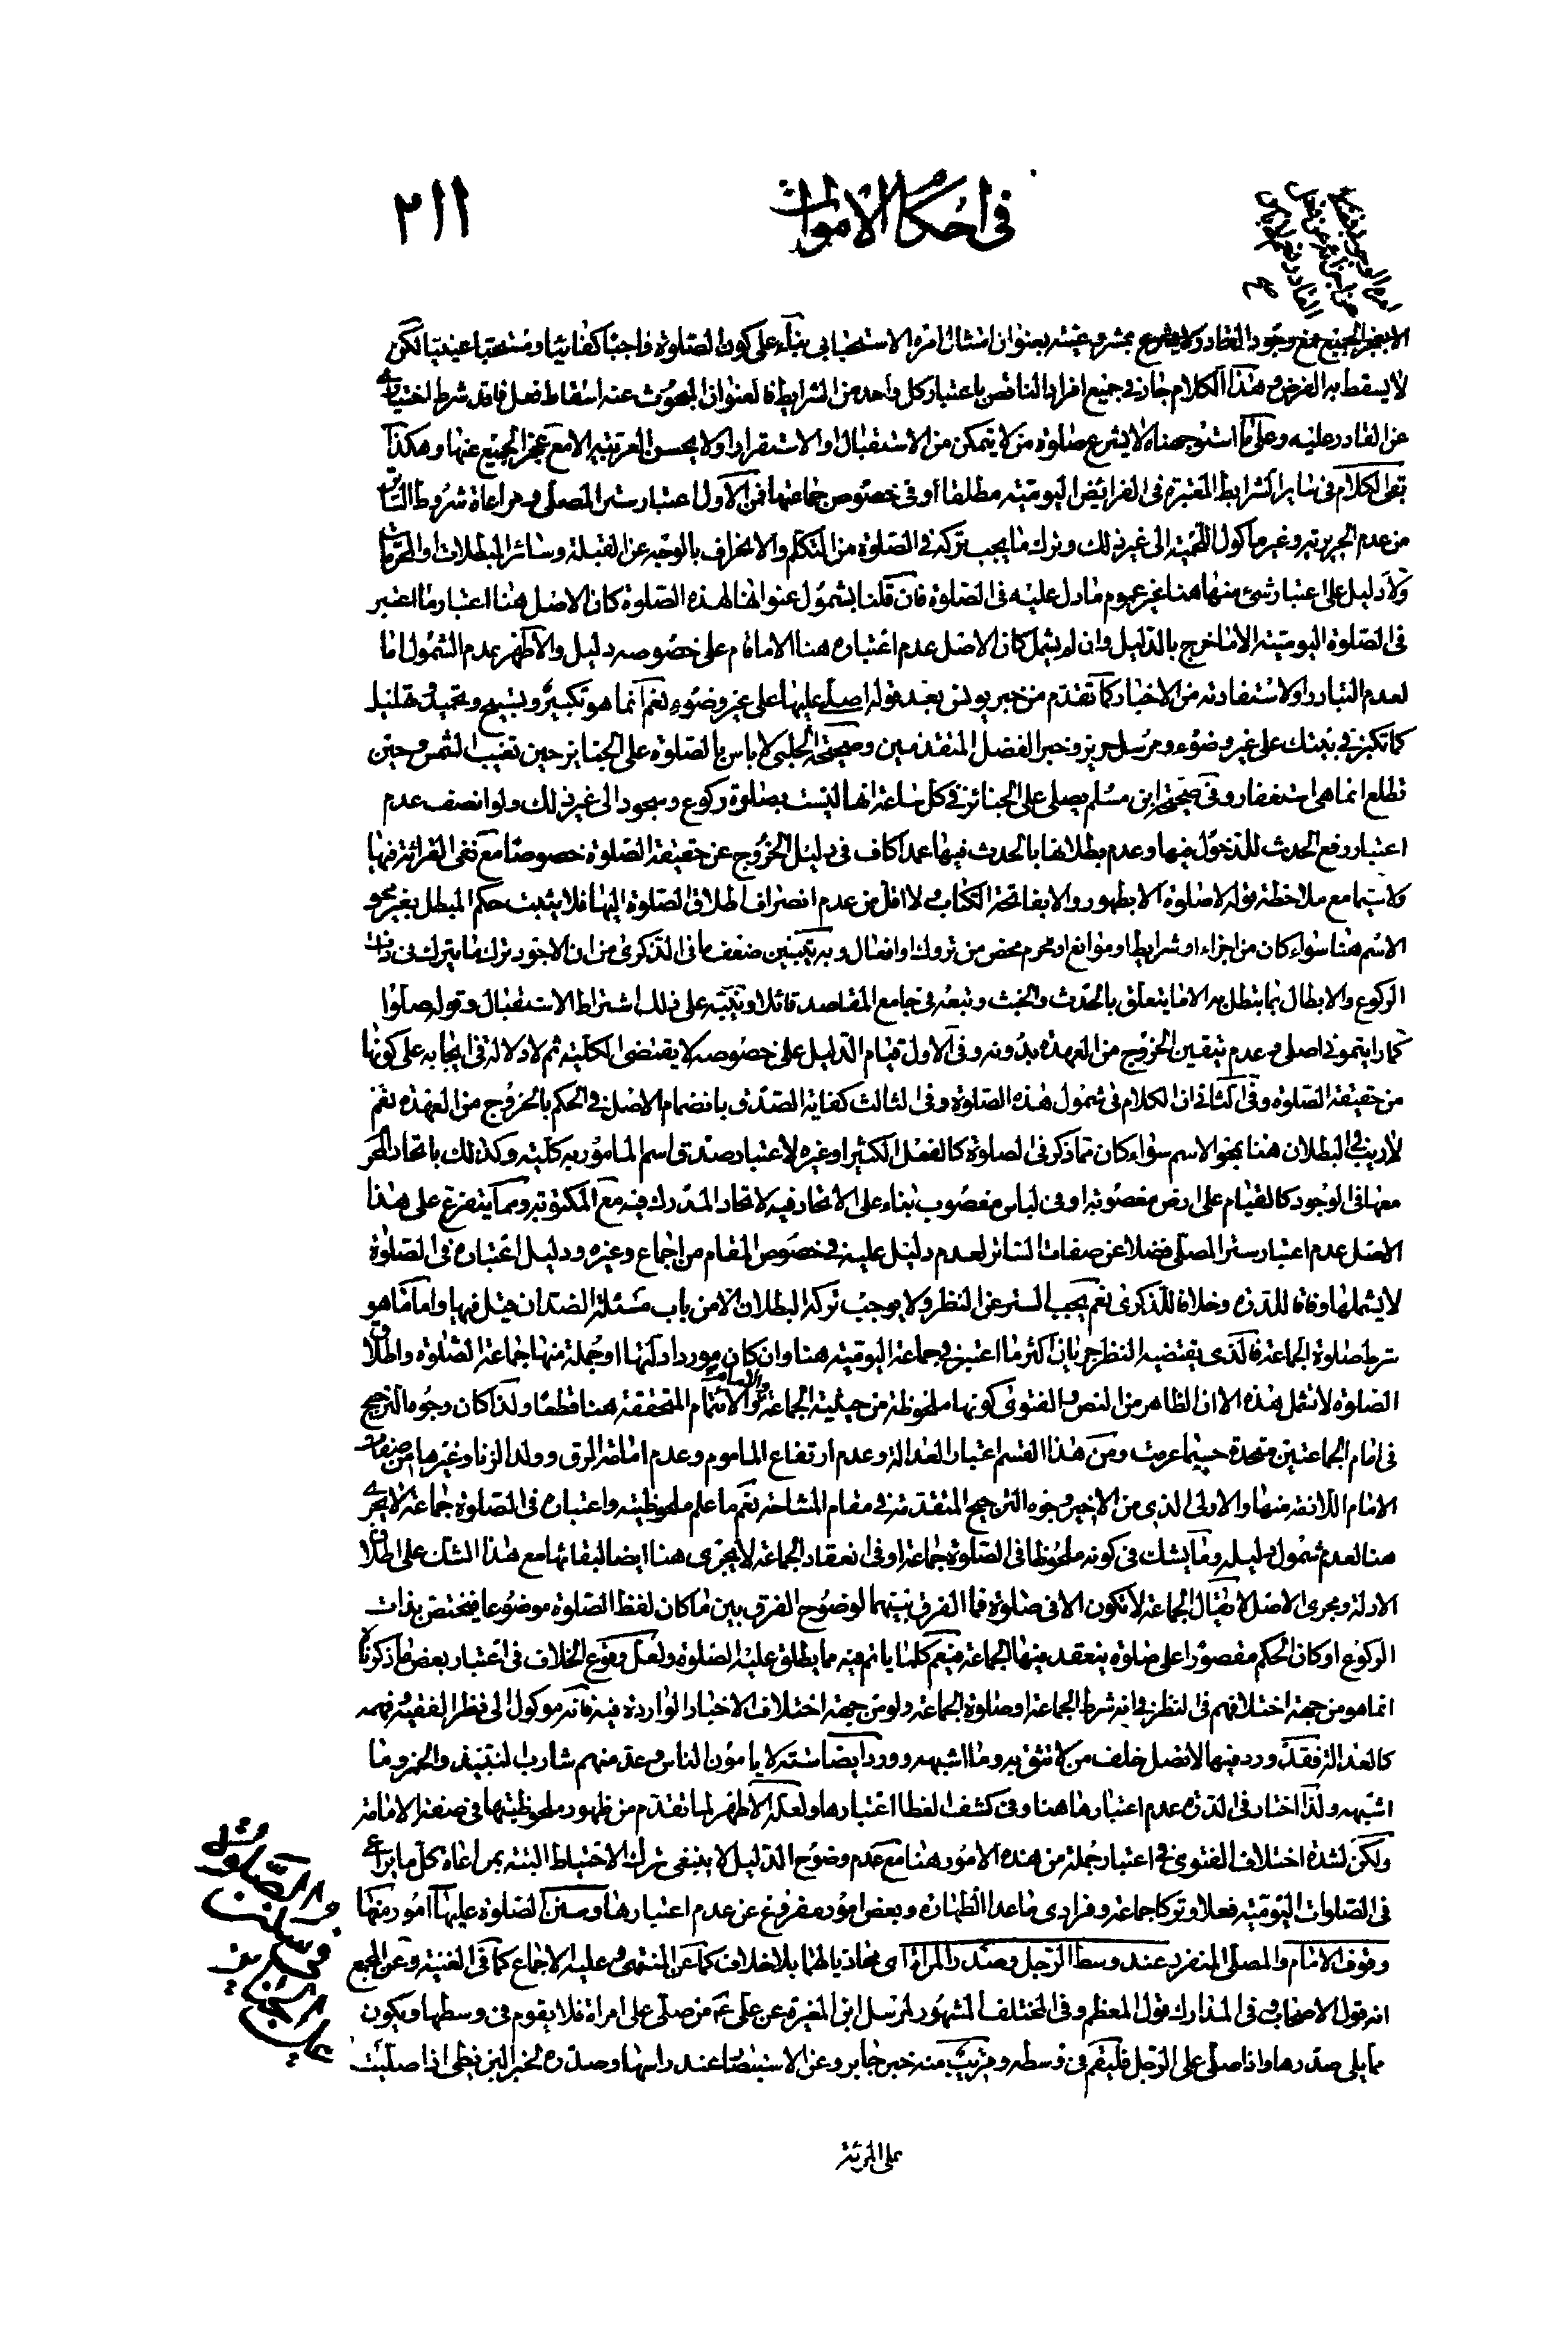 في احكام الاموات
٢١١
الا بعجز الجميع فمع وجود القادر ولا يشرع بمشروعيته بعنوان امتثال امره الاستحبابي بناء على كون الصلوة واجبا كفائيا ومستحبا عينيا لكن
لا يسقط به الفرض وهذا الكلام جار في جميع افراد الناقص باعتبار كل واحد من الشرايط فالعنوان المبحوث عنه اسقاط فعل فاقد شرط اختياري
عن القادر عليه وعلى ما استوجهناه لا يشرع صلوة من لا يتمكن من الاستقبال او الاستقرار او لا يحسن العربية الا مع عجز الجميع عنها وهكذا
بقى الكلام في ساير الشرايط المعتبرة في الفرائض اليومية مطلقا او في خصوص جماعتها فمن الاول اعتبار ستر المصلي ومراعاة شروط الساتر
من عدم الحريرية وغير مأكول اللحمية الى غير ذلك وترك ما يجب تركه في الصلوة من التكلم والانحراف بالوجه عن القبلة وسائر المبطلات او المحرمات
ولا دليل على اعتبار شئ منها هنا غير عموم ما دل عليه في الصلوة فان قلنا بشمول عنوانها لهذه الصلوة كان الاصل هنا اعتبار ما اعتبر
في الصلوة اليومية الا ما خرج بالدليل وان لم يشمل كان الاصل عدم اعتباره هنا الا ما قام على خصوصه دليل والاظهر عدم الشمول اما
لعدم التبادر او لاستفادته من الاخبار كما تقدم من خبر يونس بعد قوله اصلي عليها على غير وضوء نعم انما هو تكبير وتسبيح وتحميد وتهليل
كما تكبر في بيتك على غير وضوء ومرسل حريز وخبر الفضل المتقدمين وصحيحة الحلبي لا باس بالصلوة على الجنايز حين تغيب الشمس وحين
تطلع انما هي استغفار وفي صحيحة ابن مسلم يصلى على الجنائز في كل ساعة انها ليست بصلوة ركوع وسجود الى غير ذلك ولو انصف عدم
اعتبار رفع الحدث للدخول فيها وعدم بطلانها بالحدث فيها عمدا كاف في دليل الخروج عن حقيقة الصلوة خصوصا مع نفى القرائة فيها
ولا سيما مع ملاحظة قوله لا صلوة الا بطهور والا بفاتحة الكتاب ولا اقل من عدم انصراف اطلاق الصلوة اليها فلا يثبت حكم المبطل بغير محو
الاسم هنا سواء كان من اجزاء او شرايط او موانع او محرم محض من تروك او افعال وبه يتبين ضعف ما في الذكرى من ان الاجود ترك ما يترك في ذات
الركوع والابطال بما يبطل به الا ما يتعلق بالحدث والخبث وتبعه في جامع المقاصد قائلا وينبه على ذلك اشتراط الاستقبال وقوله صلوا
كما رايتموني اصلي وعدم تيقن الخروج من العهدة بدونه وفي الاول قيام الدليل على خصوصه لا يقتضى الكلية ثم لا دلالة في ايجابه على كونها
من حقيقة الصلوة وفي الثاني ان الكلام في شمول هذه الصلوة وفي الثالث كفاية الصدق بانضمام الاصل في الحكم بالخروج من العهدة نعم
لا ريب في البطلان هنا بمحو الاسم سواء كان مما ذكر في الصلوة كالفعل الكثير او غيره لاعتبار صدق اسم المامور به كلية وكذلك باتحاد المحرم
معها في الوجود كالقيام على ارض مغصوبة او في لباس مغصوب بناء على الاتحاد فيه لاتحاد المدرك فيه مع المكتوبة ومما يتفرع على هذا
الاصل عدم اعتبار ستر المصلي فضلا عن صفات الساتر لعدم دليل عليه في خصوص المقام من اجماع وغيره ودليل اعتباره في الصلوة
لا يشملها وفاقا للتذكرة وخلافا للذكرى نعم يجب الستر عن النظر ولا يوجب تركه البطلان الا من باب مسئلة الضد ان حيل فيها واما ما هو
شرط صلوة الجماعة فالذي يقتضيه النظر جريان اكثر ما اعتبر في جماعة اليومية هنا وان كان مورد ادلتها او جملة منها جماعة الصلوة واطلاق
الصلوة لا تشمل هذه الا ان الظاهر من النص والفتوى كونها ملحوظة من حيثية الجماعة والامامة والايتمام المتحققة هنا قطعا ولذا كان وجوه الترجيح
في امام الجماعتين متحدة حسبما عرفت ومن هذا القسم اعتبار العدالة وعدم ارتفاع الماموم وعدم امامة الرق وولد الزنا وغيرها من صفات
الامام اللازمة منها والاولى الذي من الاخير وجوه الترجيح المتقدمة في مقام المشاحة نعم ما علم ملحوظيته واعتباره في الصلوة جماعة لا يجرى
هنا لعدم شمول دليله وما يشك في كونه ملحوظا في الصلوة جماعة او في انعقاد الجماعة لا يجزى هنا ايضا لبقائها مع هذا الشك على اطلاق
الادلة ومجرى الاصل لا يقال الجماعة لا تكون الا في صلوة فما الفرق بينهما لوضوح الفرق بين ما كان لفظ الصلوة موضوعا فيختص بذات
الركوع او كان الحكم مقصورا على صلوة ينعقد فيها الجماعة فيعم كلما ياتم فيه مما يطلق عليه الصلوة ولعل وقوع الخلاف في اعتبار بعض ما ذكرنا
انما هو من جهة اختلافهم في النظر في انه شرط الجماعة او صلوة الجماعة ولو من جهة اختلاف الاخبار الواردة فيه فانه موكول الى نظر الفقيه وفهمه
كالعدالة فقد ورد فيها لا تصل خلف من لا تثق به وما اشبهه وورد ايضا ستة لا يامون الناس وعد منهم شارب النبيذ والخمر وما
اشبهه ولذا اختار في التذكرة عدم اعتبارها هنا وفي كشف الغطا اعتبارها ولعله الاظهر لما تقدم من ظهور ملحوظيتها في صفة الامامة
ولكن لشدة اختلاف الفتوى في اعتبار جملة من هذه الامور هنا مع عدم وضوح الدليل لا ينبغي ترك الاحتياط البتة بمراعاة كل ما يراعى
في الصلوات اليومية فعلا وتركا جماعة وفرادى ما عدا الطهارة وبعض امور مفروغ عن عدم اعتبارها وسنن الصلوة عليها امور منها
وقوف الامام والمصلي المنفرد عند وسط الرجل وصدر المراة اى محاذيا لهما بلا خلاف كما عن المنتهى وعليه الاجماع كما في الغنية وعن المجمع
انه قول الاصحاب وفي المدارك قول المعظم وفي المختلف المشهور لمرسل ابن المغيرة عن علي ع من صلى على امراة فلا يقوم في وسطها ويكون
مما يلى صدرها واذا صلى على الرجل فليقم في وسطه وقريب منه خبر جابر وعن الاستبصار عند راسها وصدره لخبر البزنطي اذا صليت
في الصلوة
وسنن
على المرئة